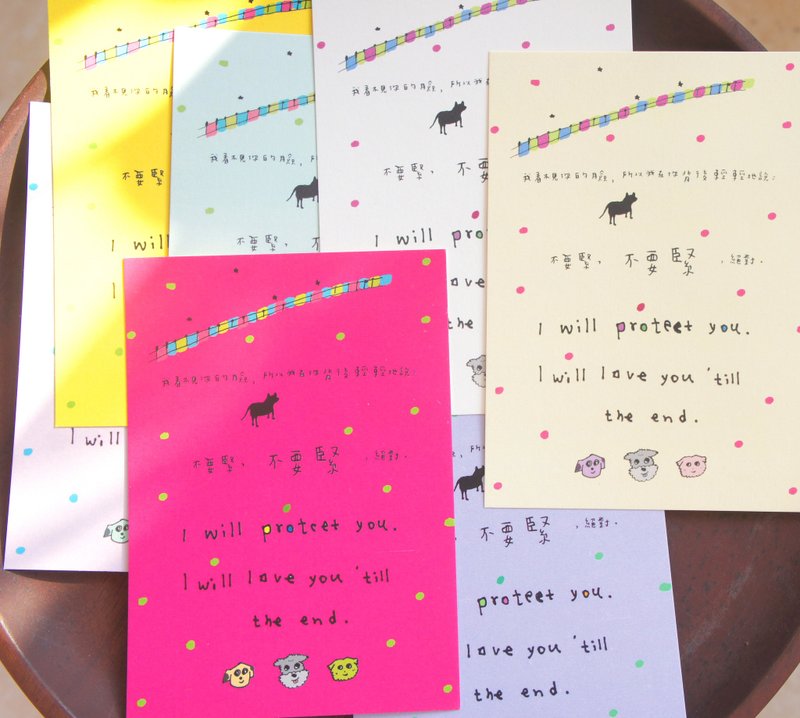 我看不見你的臉，
不要緊
I will
I
我看不見你的臉，
不要緊，不
我看不見你的臉，所以我
不要緊，不要
I will pro
love
the
我看不見你的臉，所以我在你背後輕輕地說：
不要緊，不要緊，絕對．
I will protect you.
I will love you 'till
the end.
I will
我看不見你的臉，所以我在你背後輕輕地說：
不要緊，不要緊，絕對．
I will protect you.
I will love you 'till
the end.
不要緊，絕對．
protect you.
love you 'till
the end.